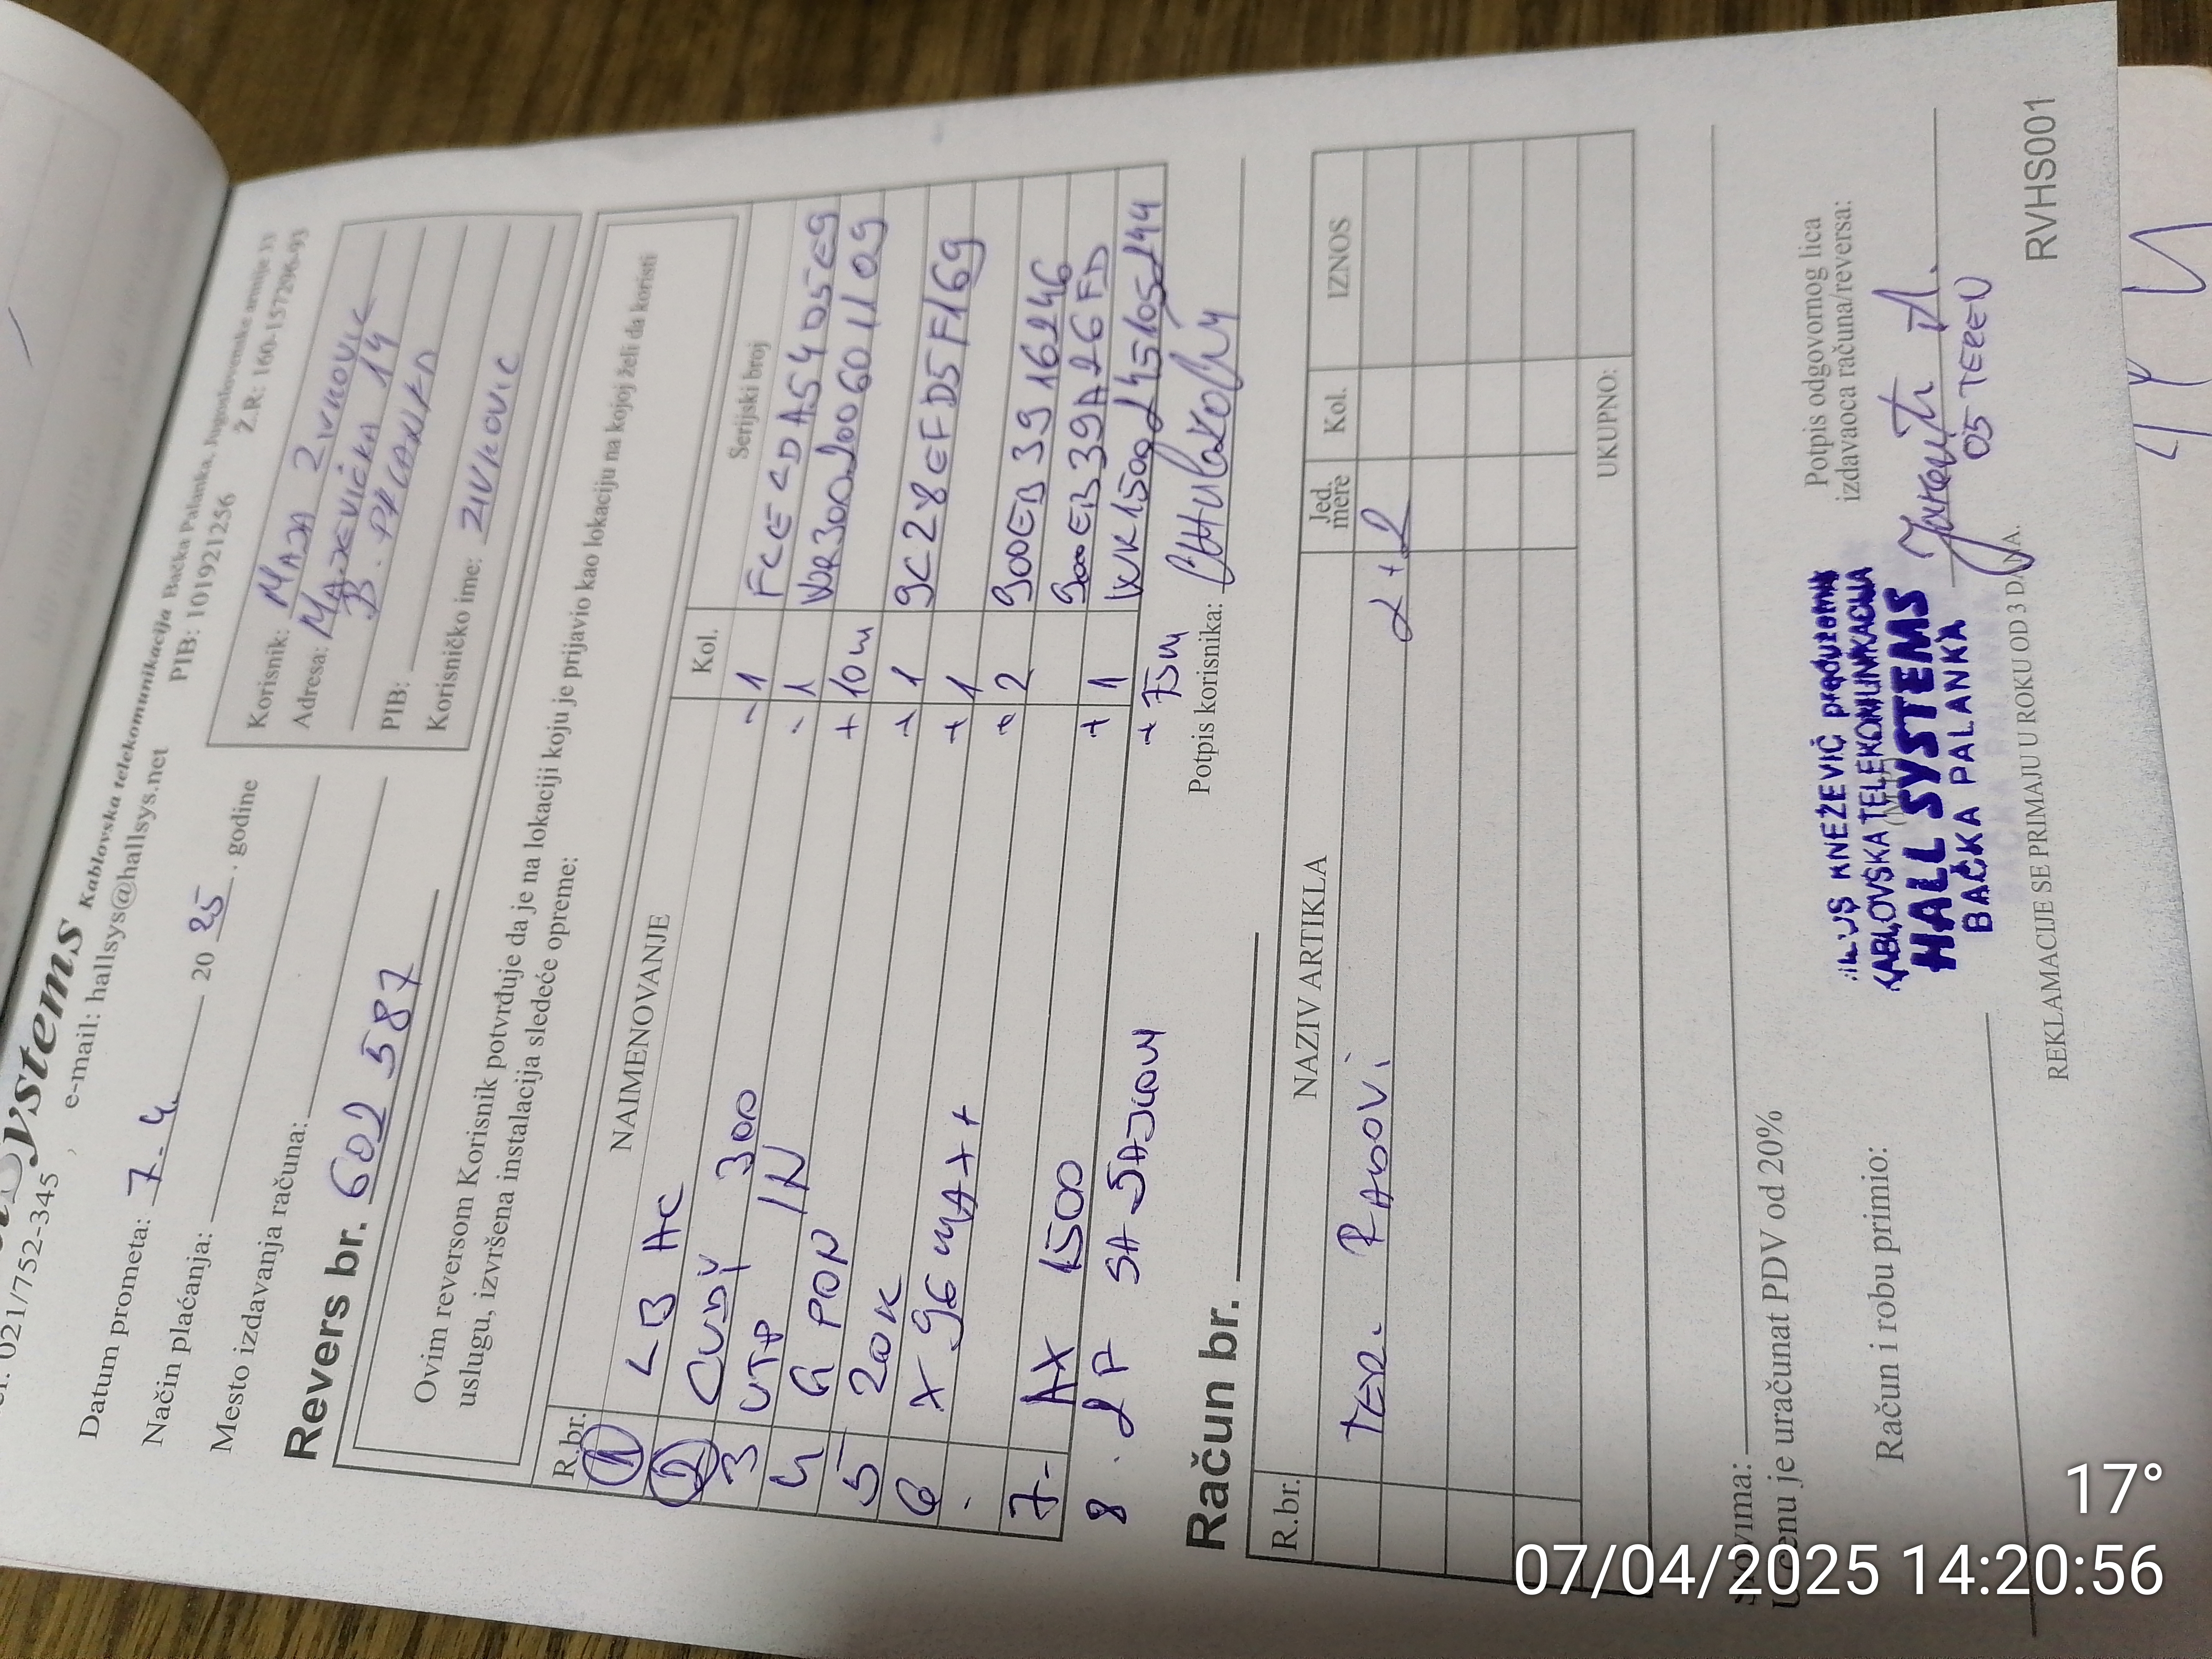 Systems Kablovska telekomunikacija Bačka Palanka, Jugoslovenske armije 33
021/752-345, e-mail: hallsys@hallsys.net PIB: 101921256 Ž.R: 160-157206-93
Datum prometa: 7-4. 20 25. godine
Način plaćanja:
Mesto izdavanja računa:
Revers br. 602 587
Korisnik: MAJA ZIVKOVIC
Adresa: 14
B. PALANKA
PIB:
Korisničko ime: ZIVKOVIC
Ovim reversom Korisnik potvrđuje da je na lokaciji koju je prijavio kao lokaciju na kojoj želi da koristi
uslugu, izvršena instalacija sledeće opreme:
R.br. NAIMENOVANJE Kol. Serijski broj
1 LB AC - 1 FCECDA5405E9
2 CUDY 300 - 1
3 UTP IN + 10m
4 G PON + 1 9C28EFD5F169
5 ZOK + 1
6 X 96 MAX+ + 2 900EB3916246
900EB39A26FD
7- AX 1500 + 1
8. 2P SA SAJLOM + 75m
Potpis korisnika:
Račun br.
R.br. NAZIV ARTIKLA Jed. mere Kol. IZNOS
TER. RADOVI 2+2
UKUPNO:
Slovima:
U cenu je uračunat PDV od 20%
Račun i robu primio:
KNEŽEVIĆ preduzetnik
KABLOVSKA TELEKOMUNIKACIJA
HALL SYSTEMS
BAČKA PALANKA
Potpis odgovornog lica
izdavaoca računa/reversa:
05 TEREN
REKLAMACIJE SE PRIMAJU U ROKU OD 3 DANA.
RVHS001
17°
07/04/2025 14:20:56